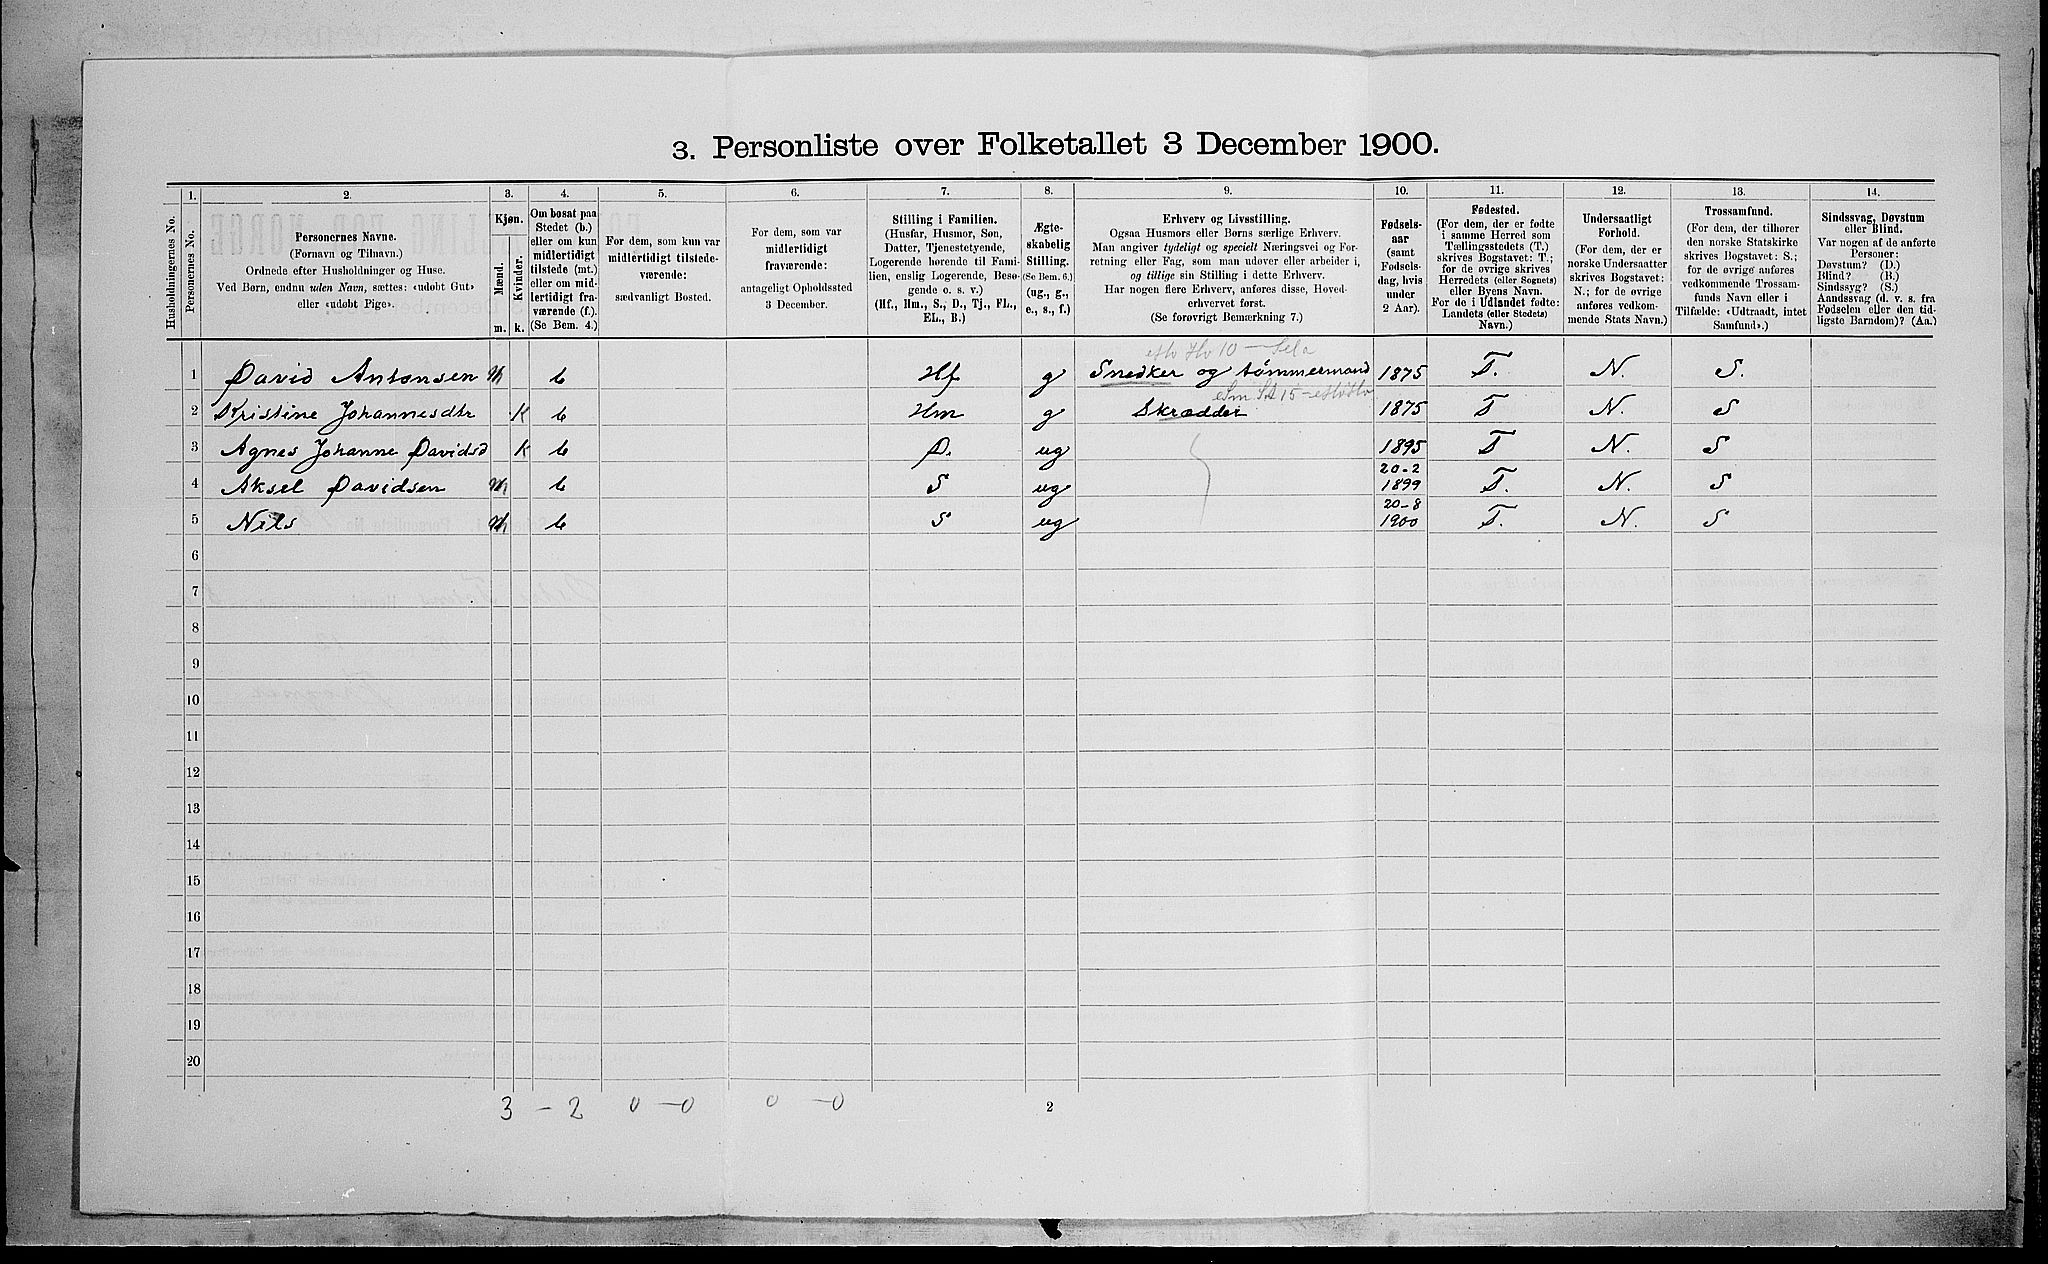 3. Personliste over Folketallet 3 December 1900.
1. 2. 3. 4. 5. 6. 7. 8. 9. 10. 11. 12. 13. 14.
Husholdningernes No.
Personernes No.
Personernes Navne.
(Fornavn og Tilnavn.)
Ordnede efter Husholdninger og Huse.
Ved Børn, endnu uden Navn, sættes: «udøbt Gut»
eller «udøbt Pige».
Kjøn.
Mænd.
Kvinder.
m. k.
Om bosat paa
Stedet (b.)
eller om kun
midlertidigt
tilstede (mt.)
eller om mid-
lertidigt fra-
værende (f.).
(Se Bem. 4.)
For dem, som kun var
midlertidigt tilstede-
værende:
sædvanligt Bosted.
For dem, som var
midlertidigt
fraværende:
antageligt Opholdssted
3 December.
Stilling i Familien.
(Husfar, Husmor, Søn,
Datter, Tjenestetyende,
Logerende hørende til Fami-
lien, enslig Logerende, Besø-
gende o. s. v.)
(Hf., Hm., S., D., Tj., FL.,
EL., B.)
Ægte-
skabelig
Stilling.
(Se Bem. 6.)
(ug., g.,
e., s., f.)
Erhverv og Livsstilling.
Ogsaa Husmors eller Børns særlige Erhverv.
Man angiver tydeligt og specielt Næringsvei og For-
retning eller Fag, som man udøver eller arbeider i,
og tillige sin Stilling i dette Erhverv.
Har nogen flere Erhverv, anføres disse, Hoved-
erhvervet først.
(Se forøvrigt Bemærkning 7.)
Fødsels-
aar
(samt
Fødsels-
dag, hvis
under
2 Aar).
Fødested.
(For dem, der er fødte
i samme Herred som
Tællingsstedets (T.)
skrives Bogstavet: T.;
for de øvrige skrives
Herredets (eller Sognets)
eller Byens Navn.
For de i Udlandet fødte:
Landets (eller Stedets)
Navn.)
Undersaatligt
Forhold.
(For dem, der er
norske Undersaatter
skrives Bogstavet:
N.; for de øvrige
anføres vedkom-
mende Stats Navn.)
Trossamfund.
(For dem, der tilhører
den norske Statskirke
skrives Bogstavet: S.;
for de øvrige anføres
vedkommende Trossam-
funds Navn eller i
Tilfælde: «Udtraadt, intet
Samfund».)
Sindssvag, Døvstum
eller Blind.
Var nogen af de anførte
Personer:
Døvstum? (D.)
Blind? (B.)
Sindssyg? (S.)
Aandssvag (d. v. s. fra
Fødselen eller den tid-
ligste Barndom)? (Aa.)
1 David Antonsen m b Hf g Snedker og tømmermand 1875 T. N. S.
2 Kristine Johannesdtr K b Hm g Skrædder 1875 T N. S
3 Agnes Johanne Davidsd K b D. ug 1895 T N. S
4 Aksel Davidsen m b S ug 20-2 1899 T. N. S
5 Nils m b S ug 20-8 1900 T. N. S
6
7
8
9
10
11
12
13
14
15
16
17
18
19
20
3 – 2 0 – 0 0 – 0 2